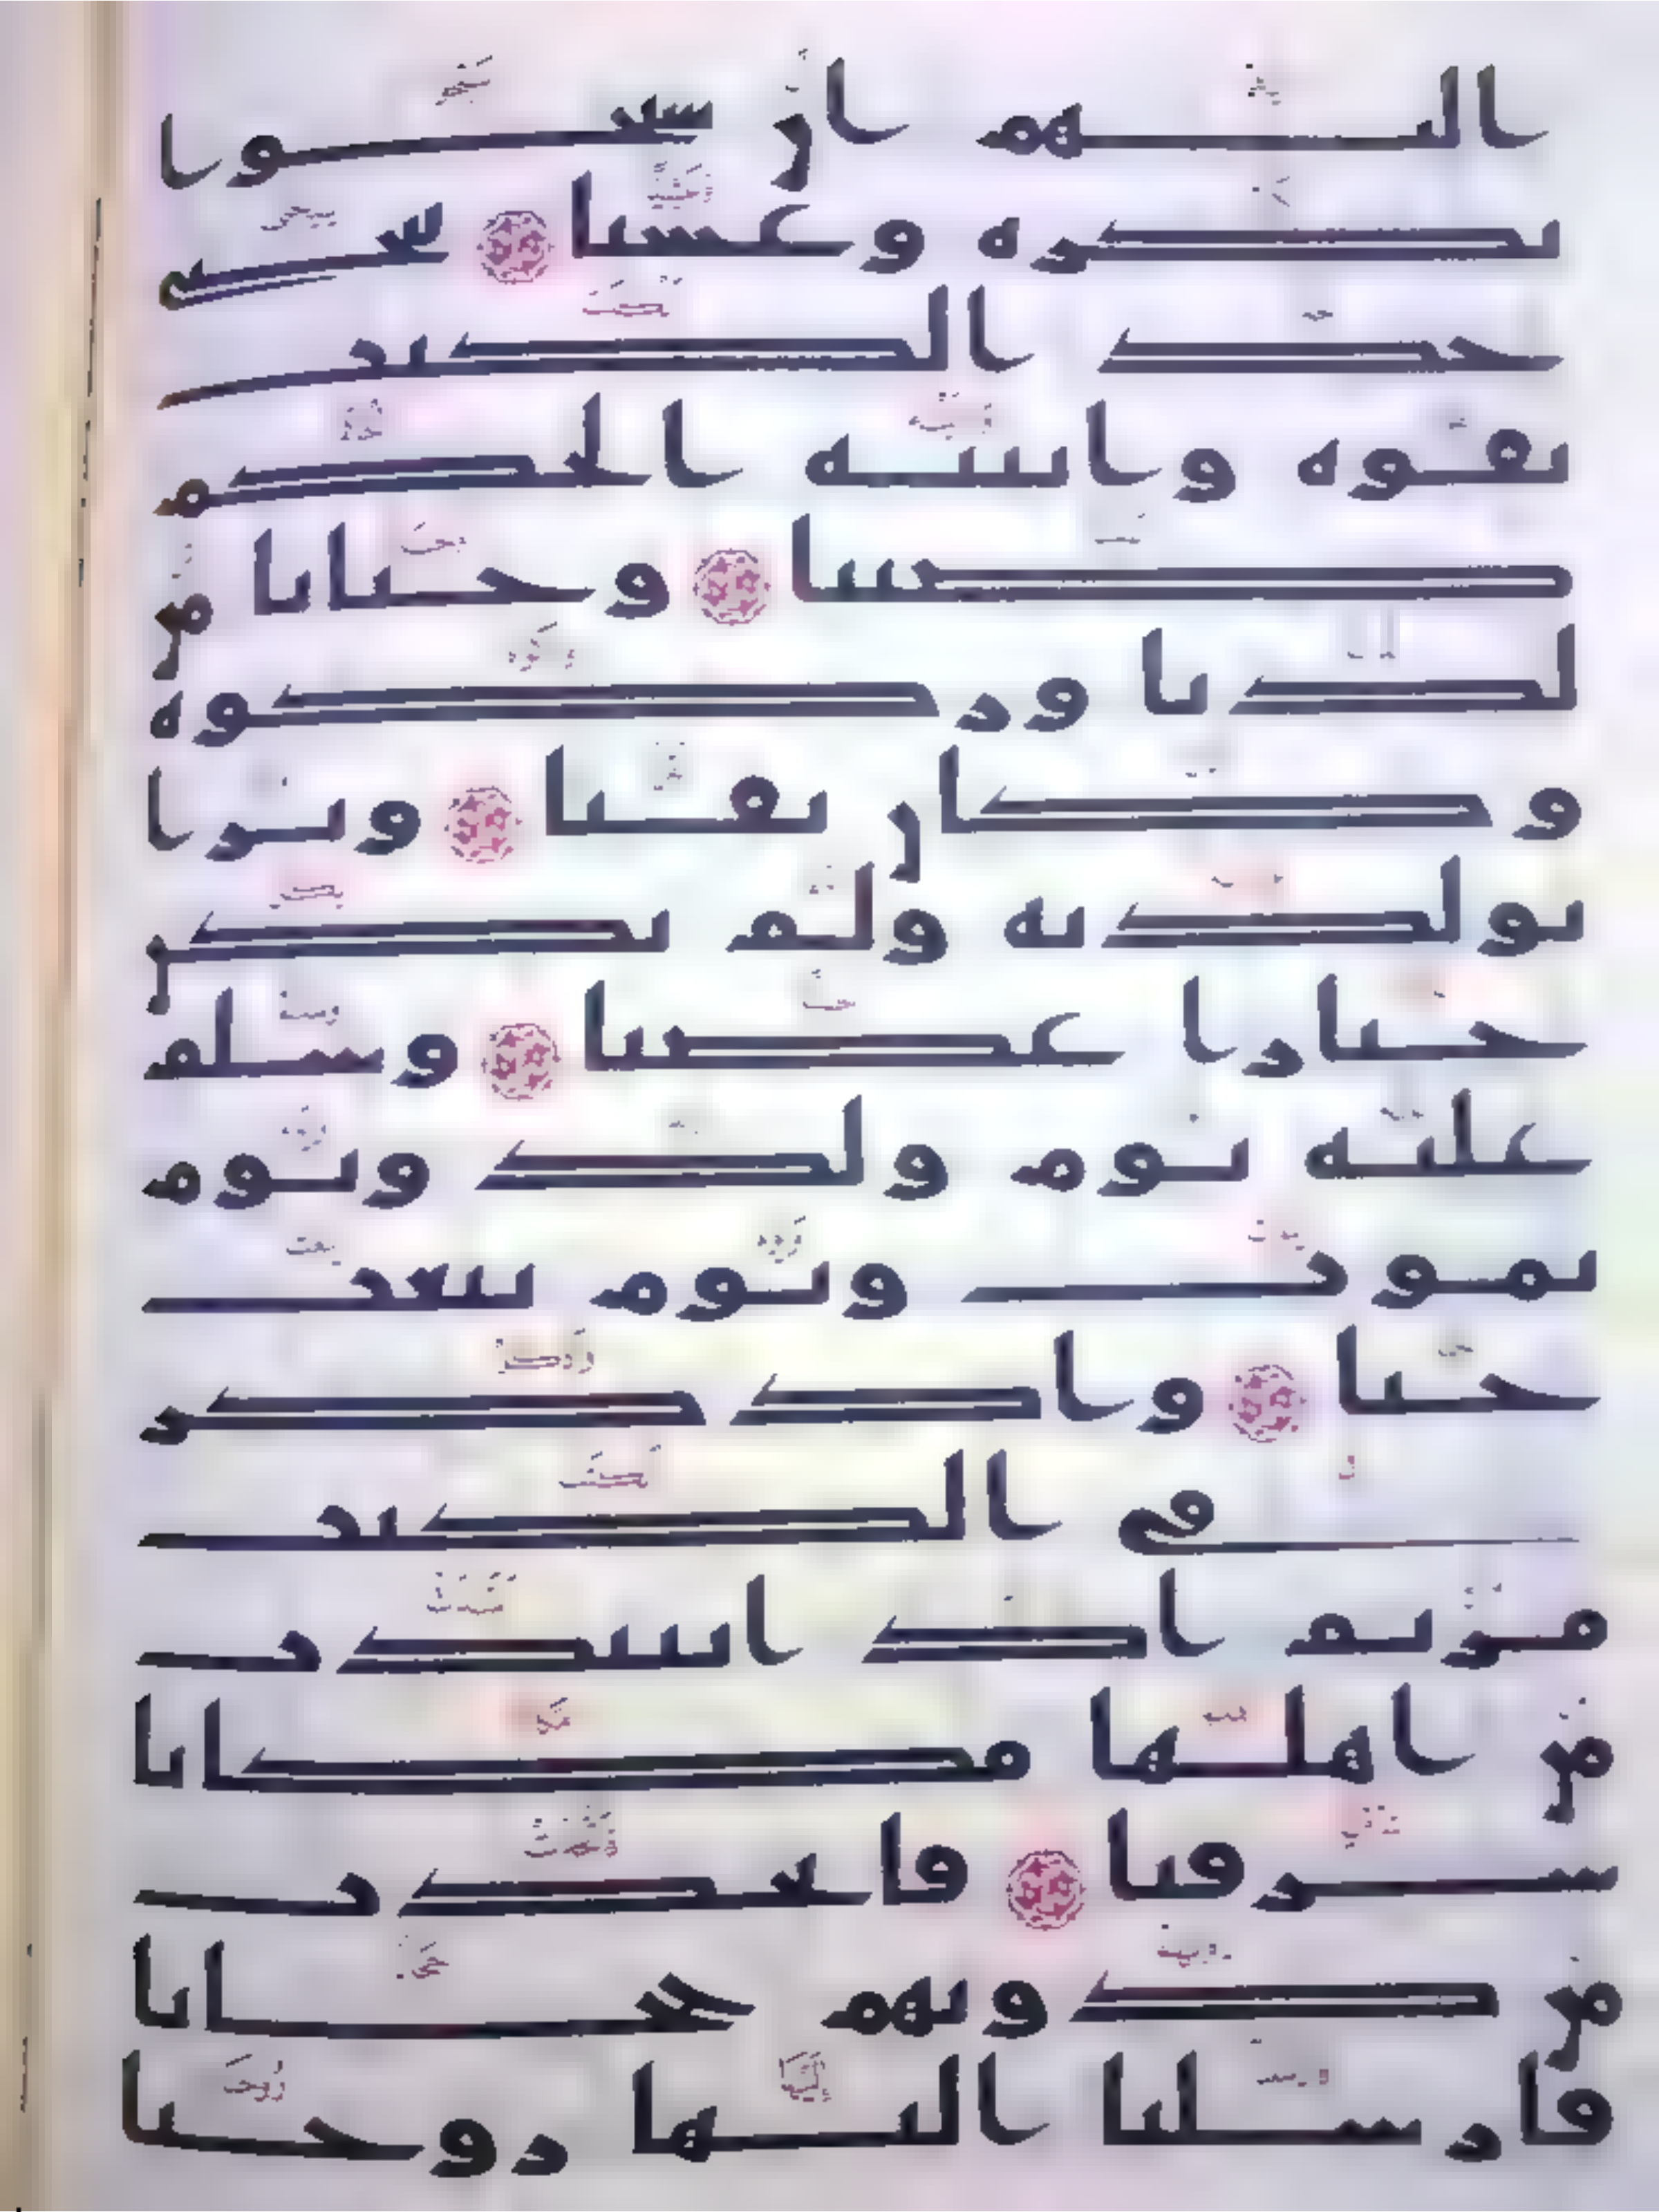 اليهم ان سبحوا
بكرة وعشيا ۝ يحيى
خذ الكتب
بقوة واتينه الحكم
صبيا ۝ وحنانا من
لدنا وزكوة
وكان تقيا ۝ وبرا
بولديه ولم يكن
جبارا عصيا ۝ وسلم
عليه يوم ولد ويوم
يموت ويوم يبعث
حيا ۝ واذكر
في الكتب
مريم اذ انتبذت
من اهلها مكانا
شرقيا ۝ فاتخذت
من دونهم حجابا
فارسلنا اليها روحنا